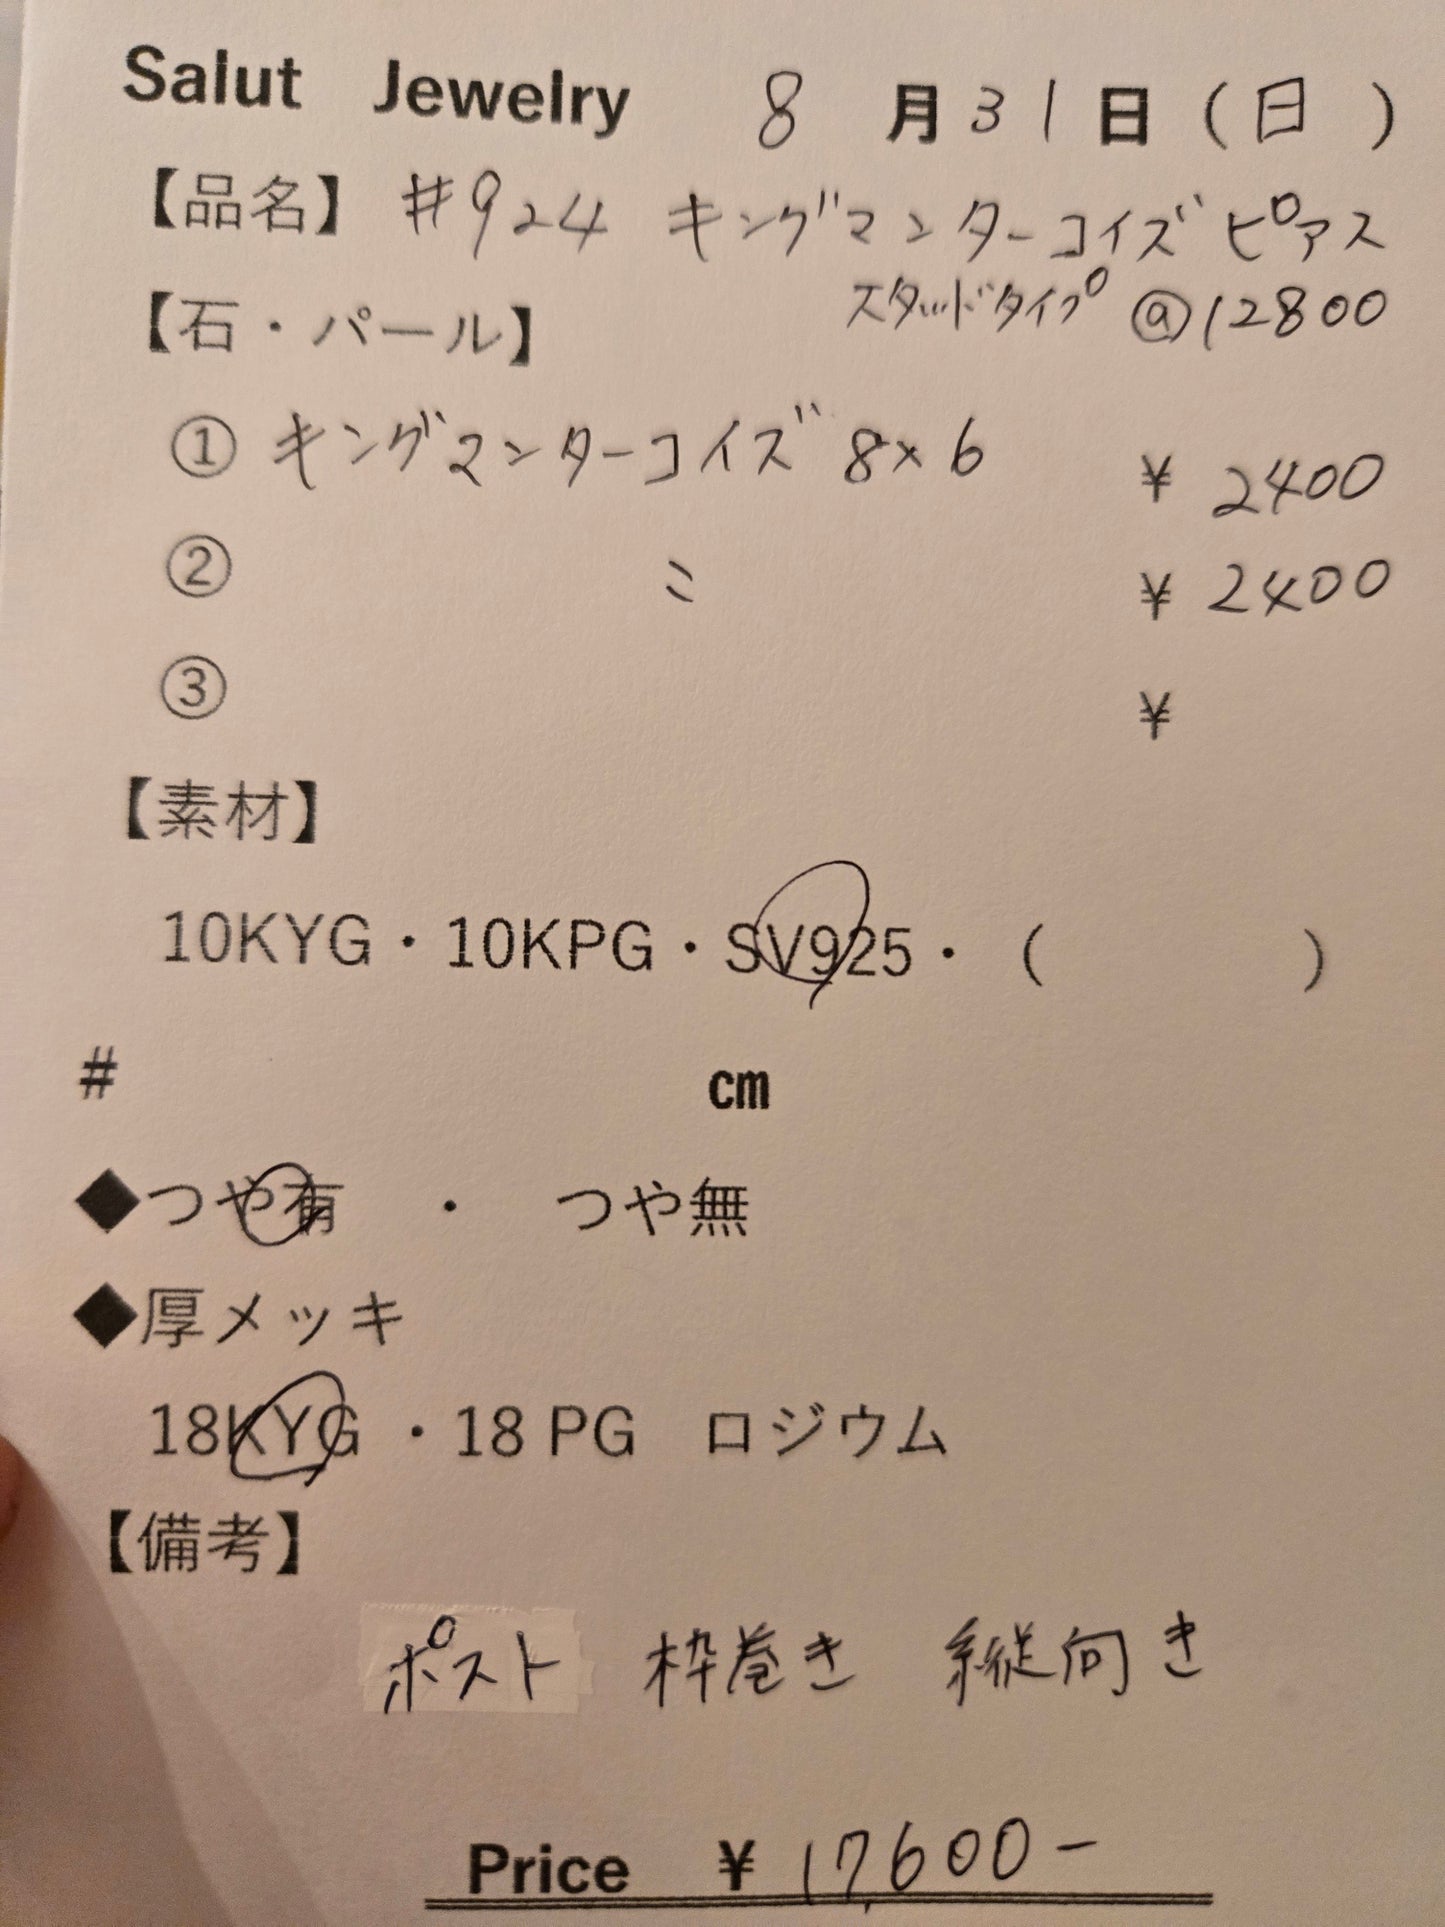 Salut Jewelry 8月31日(日)
【品名】 #924 キングマンターコイズピアス
スタッドタイプ @12800
【石・パール】
① キングマンターコイズ 8×6 ¥2400
② 〃 ¥2400
③ ¥
【素材】
10KYG・10KPG・SV925・( )
# cm
◆つや有 ・ つや無
◆厚メッキ
18KYG ・18 PG ロジウム
【備考】
ポスト 枠巻き 縦向き
Price ¥ 17,600-